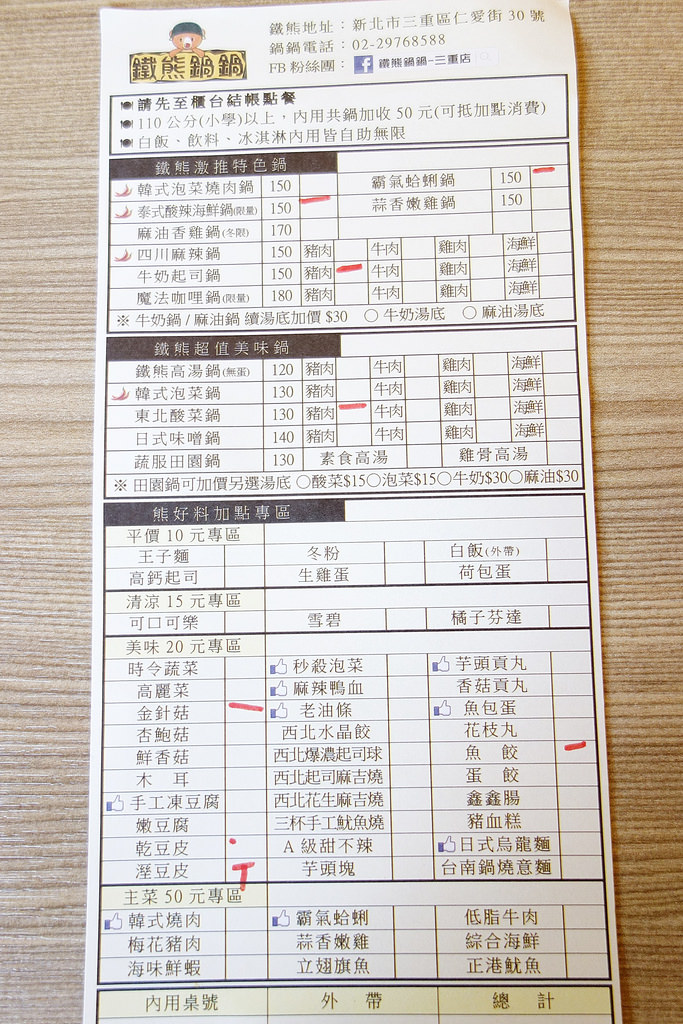 鐵熊鍋鍋
鐵熊地址：新北市三重區仁愛街30號
鍋鍋電話：02-29768588
FB粉絲團： f 鐵熊鍋鍋-三重店
請先至櫃台結帳點餐
110公分(小學)以上，內用共鍋加收50元(可抵加點消費)
白飯、飲料、冰淇淋內用皆自助無限
鐵熊激推特色鍋
韓式泡菜燒肉鍋 150 霸氣蛤蜊鍋 150
泰式酸辣海鮮鍋(限量) 150 蒜香嫩雞鍋 150
麻油香雞鍋(冬限) 170
四川麻辣鍋 150 豬肉 牛肉 雞肉 海鮮
牛奶起司鍋 150 豬肉 牛肉 雞肉 海鮮
魔法咖哩鍋(限量) 180 豬肉 牛肉 雞肉 海鮮
※ 牛奶鍋/麻油鍋 續湯底加價$30 ○ 牛奶湯底 ○ 麻油湯底
鐵熊超值美味鍋
鐵熊高湯鍋(無蛋) 120 豬肉 牛肉 雞肉 海鮮
韓式泡菜鍋 130 豬肉 牛肉 雞肉 海鮮
東北酸菜鍋 130 豬肉 牛肉 雞肉 海鮮
日式味噌鍋 140 豬肉 牛肉 雞肉 海鮮
蔬服田園鍋 130 素食高湯 雞骨高湯
※ 田園鍋可加價另選湯底 ○酸菜$15○泡菜$15○牛奶$30○麻油$30
熊好料加點專區
平價10元專區
王子麵 冬粉 白飯(外帶)
高鈣起司 生雞蛋 荷包蛋
清涼15元專區
可口可樂 雪碧 橘子芬達
美味20元專區
時令蔬菜 秒殺泡菜 芋頭貢丸
高麗菜 麻辣鴨血 香菇貢丸
金針菇 老油條 魚包蛋
杏鮑菇 西北水晶餃 花枝丸
鮮香菇 西北爆濃起司球 魚 餃
木 耳 西北起司麻吉燒 蛋 餃
手工凍豆腐 西北花生麻吉燒 鑫鑫腸
嫩豆腐 三杯手工魷魚燒 豬血糕
乾豆皮 A級甜不辣 日式烏龍麵
溼豆皮 芋頭塊 台南鍋燒意麵
主菜50元專區
韓式燒肉 霸氣蛤蜊 低脂牛肉
梅花豬肉 蒜香嫩雞 綜合海鮮
海味鮮蝦 立翅旗魚 正港魷魚
內用桌號 外 帶 總 計